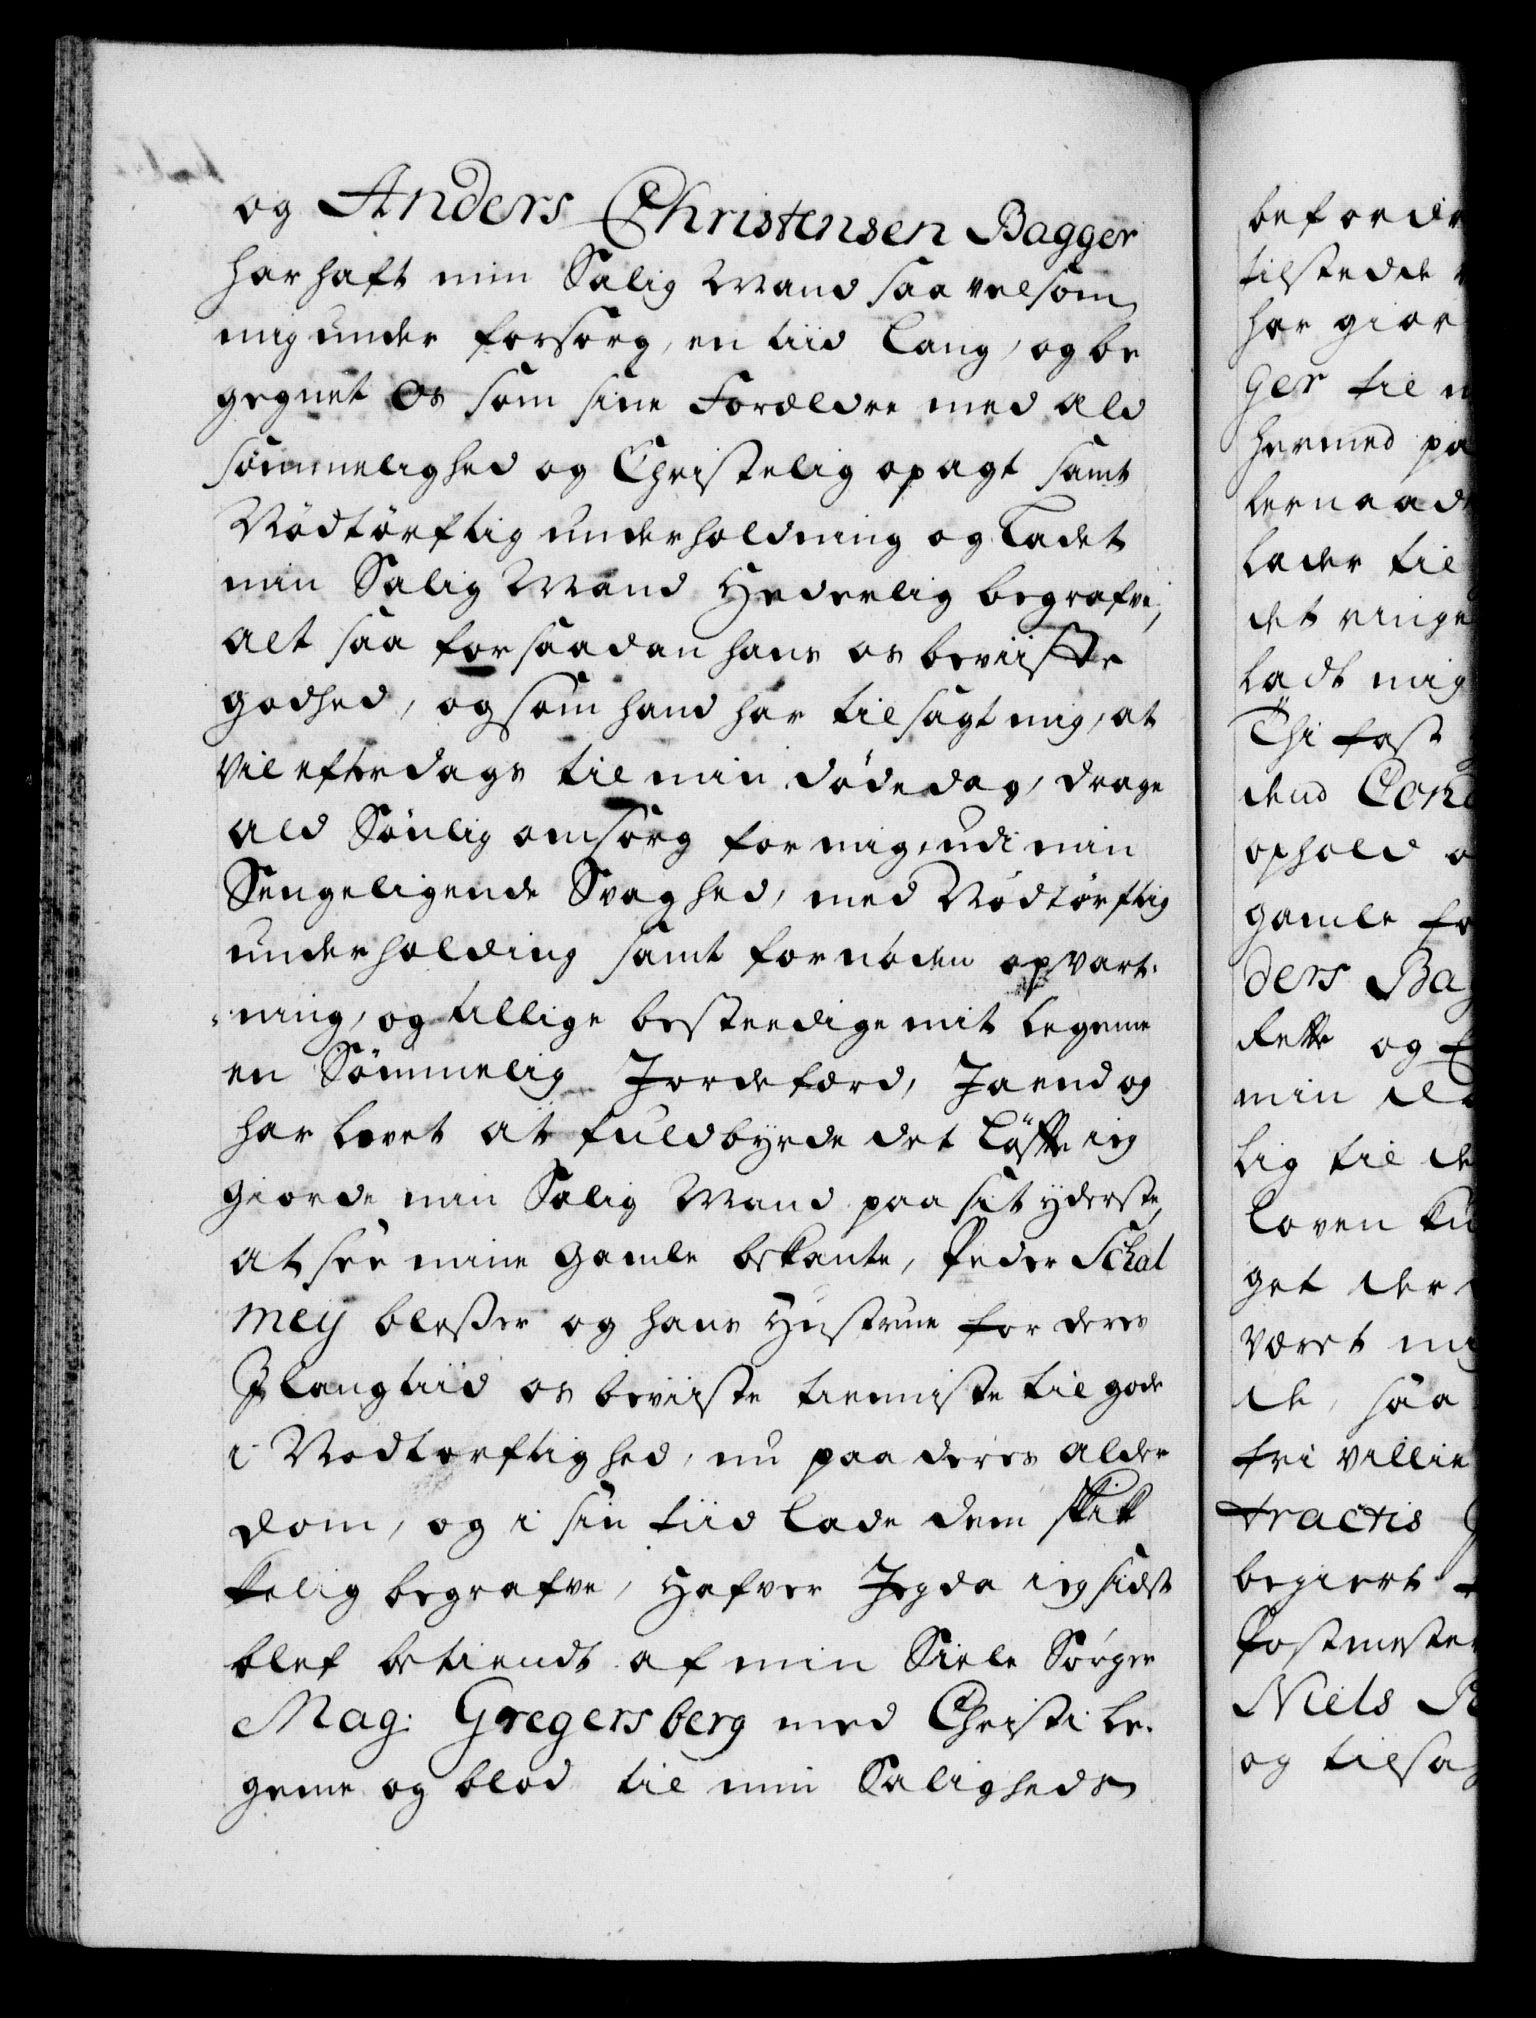 og Anders Christensen Bagger
har haft min Salig Mand saa velsom
mig under forsorg, en tiid lang, og be
gegnet Os som sine Forældre med ald
sømmelighed og Christelig opagt samt
Nödtørftig underholdning og Ladet
min Salig Mand Hederlig begrafve,
alt saa for saadan hans os beviiste
godhed, og som hand har tilsagt mig, at
vil efterdags til min dødedag, drage
ald Sönlig omsorg for mig, udi min
Sengeligende Svaghed, med Nödtørftig
underholding samt fornøden opvart-
ning, og tillige bestædige mit legeme
en Sömmelig Jordefærd, Ja end og
har lovet at fuldbyrde det Löffte ieg
giorde min Salig Mand paa sit yderste,
at see mine gamle bekante, Peder Schal
mey bleßer og hans Hustrue for deres
J lang tiid os beviiste tienniste til gode
i Nödtørftighed, nu paa deres alder
dom, og i sin tiid lade dem skik
kelig begrafve, Hafver Jeg da ieg sidst
blef betiendt af min Siele Sörger
Mag: Gregersberg med Christi Le-
geme og blod til min Saligheds
beforder
tilstedde
har gior
ger til
hermed pa
bernaad
lader til
det ringe
ladt mig
Thi fast
dend Con
ophold
gamle fo
ders Bag
Rette og
min
lig til de
loven
get der
Været
de, saa
fri villie
tractis
begiert
Postmester
Niels
og tilsag